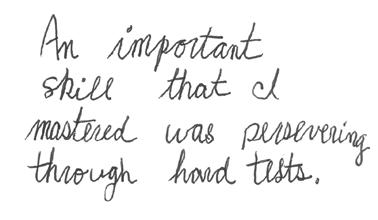 An important
skill that I
mastered was persevering
through hard tests.